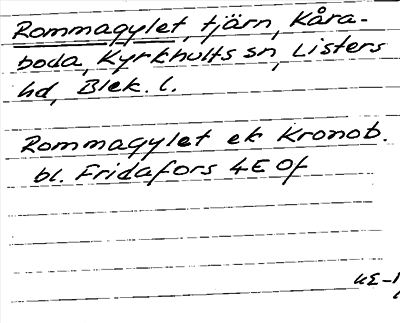 Rommagylet, tjärn, Kåra-
boda, Kyrkhults sn, Listers
hd, Blek. l.
Rommagylet ek Kronob.
bl. Fridafors 4E 0f